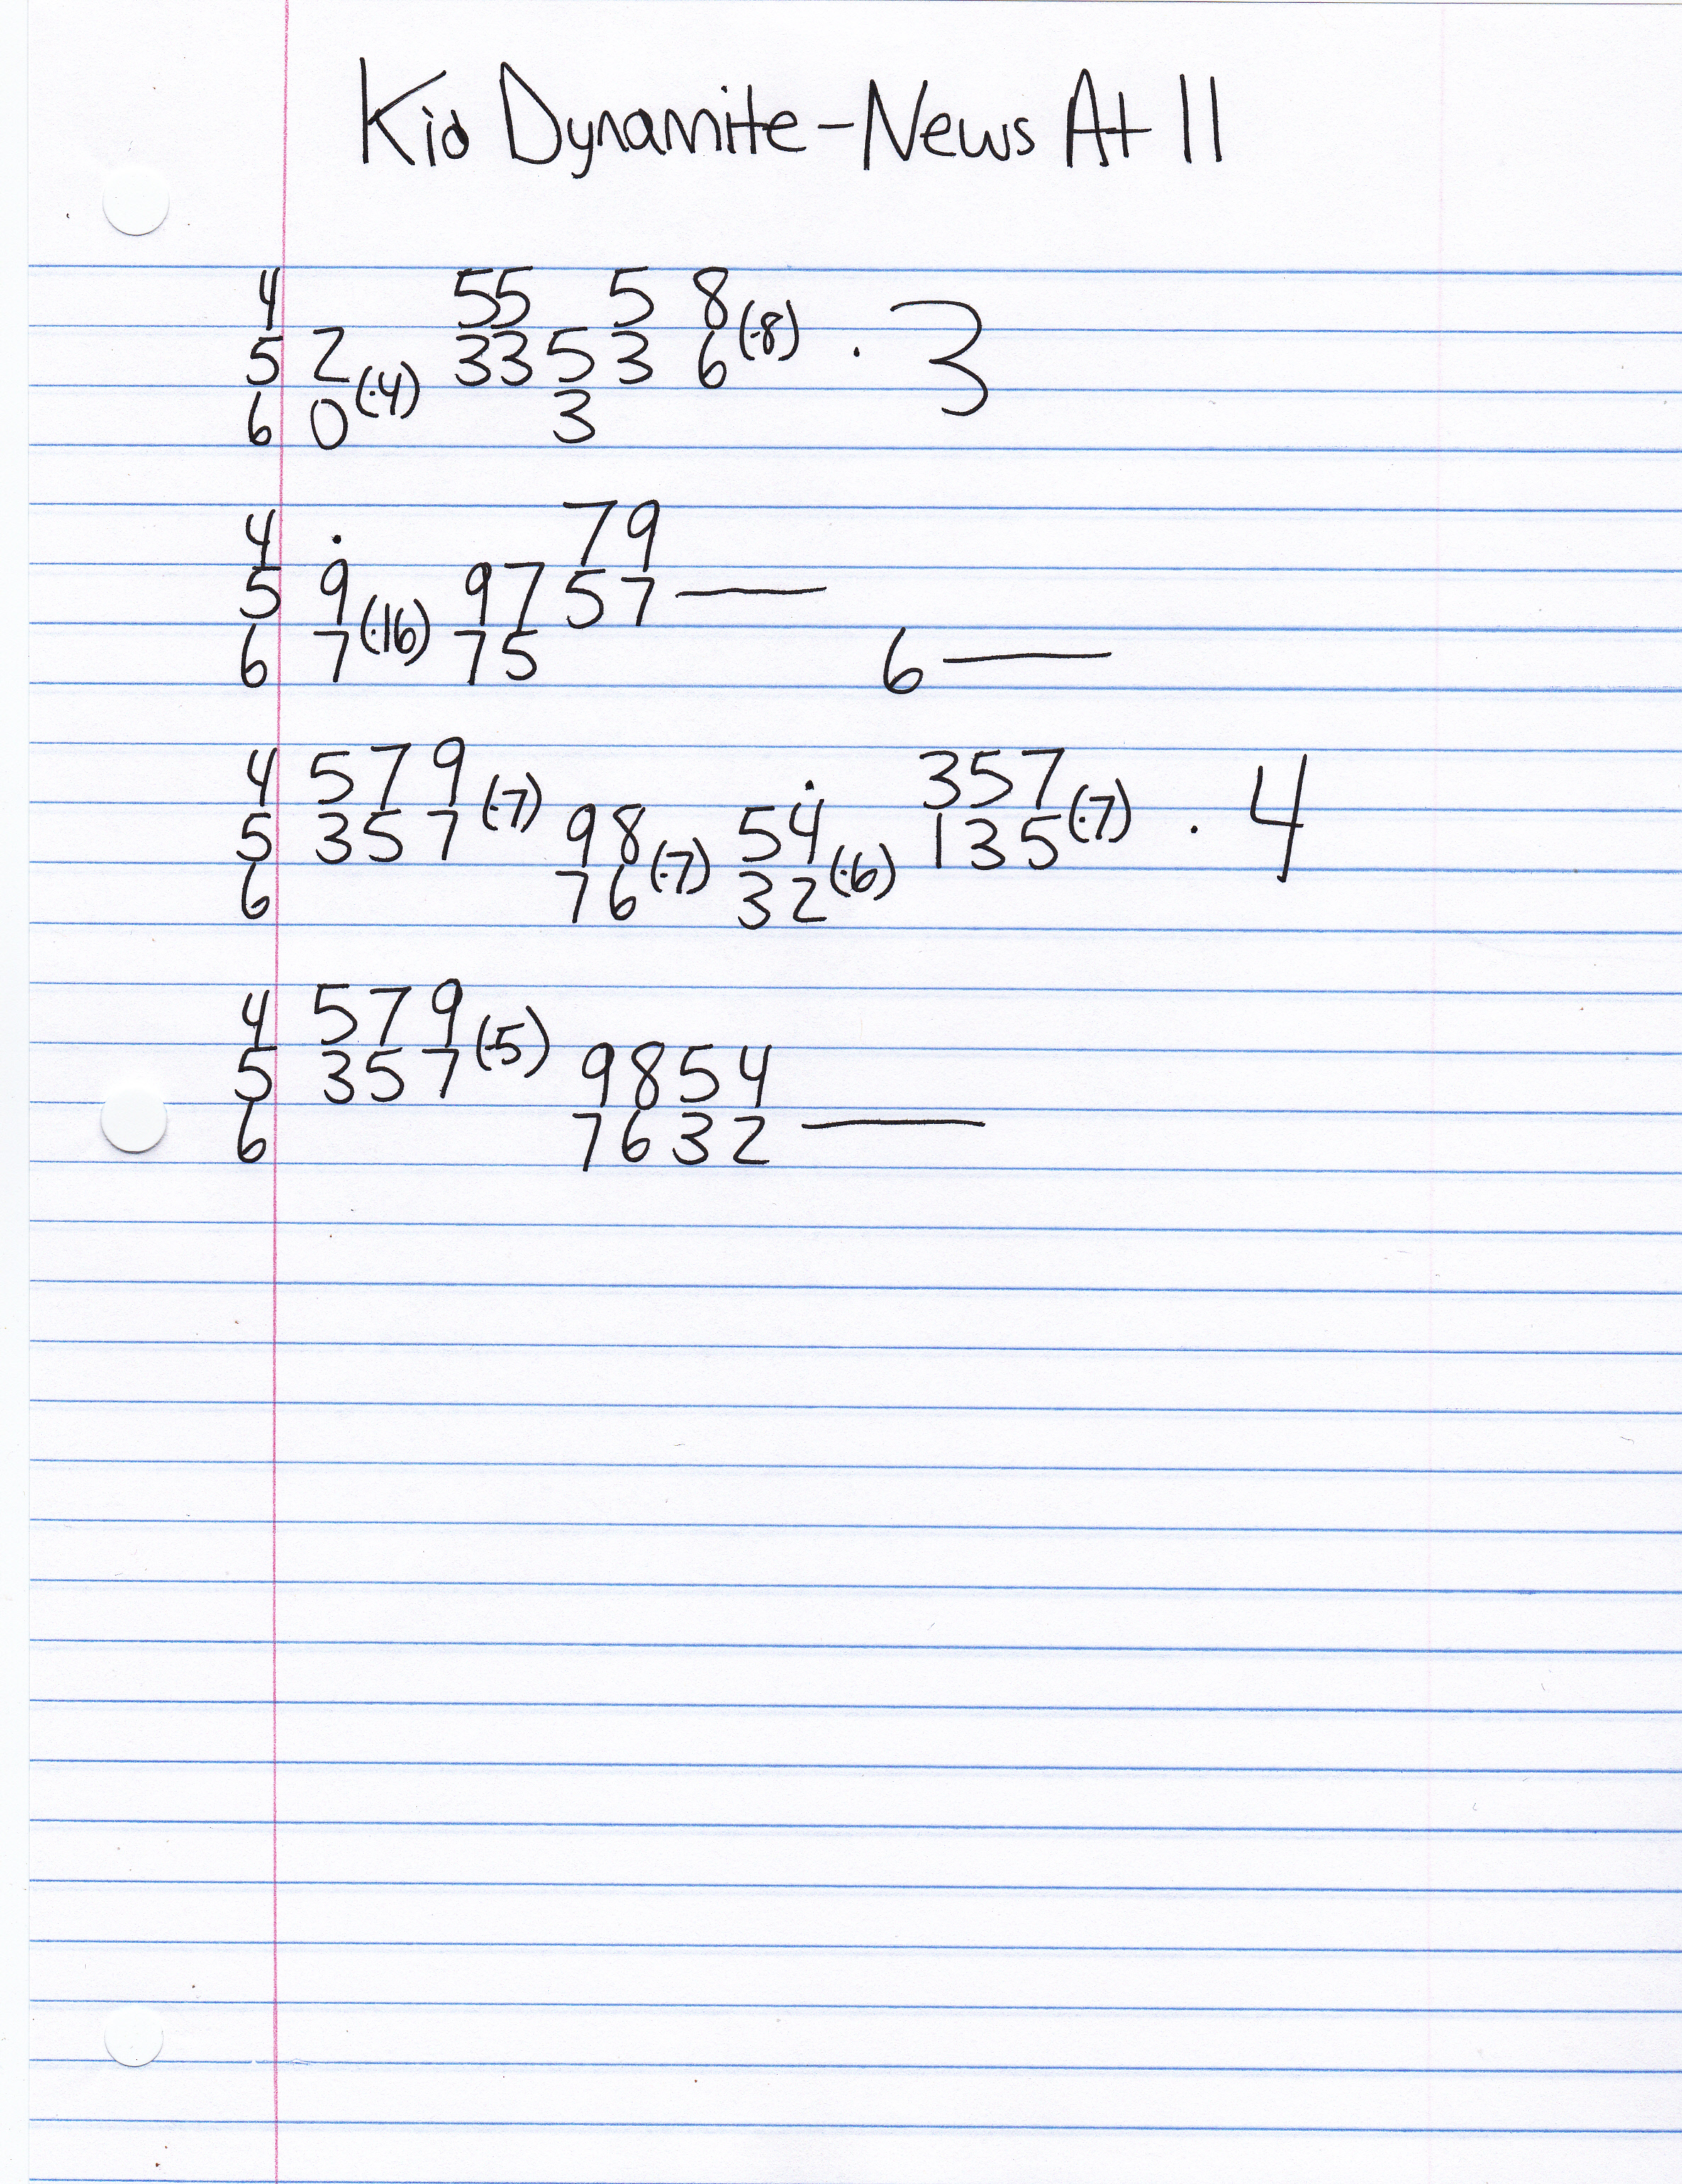 Kid Dynamite - News At 11
4 55 5 8
5 2 33 5 3 6 (·8) · 3
6 0 (·4) 3
4 · 79
5 9 97 57 —
6 7 (·16) 75 6 —
4 579 (·7) · 357 (·7)
5 357 98 54 135 · 4
6 76 (·7) 32 (·6)
4 579 (·5)
5 357 9854
6 7632 —